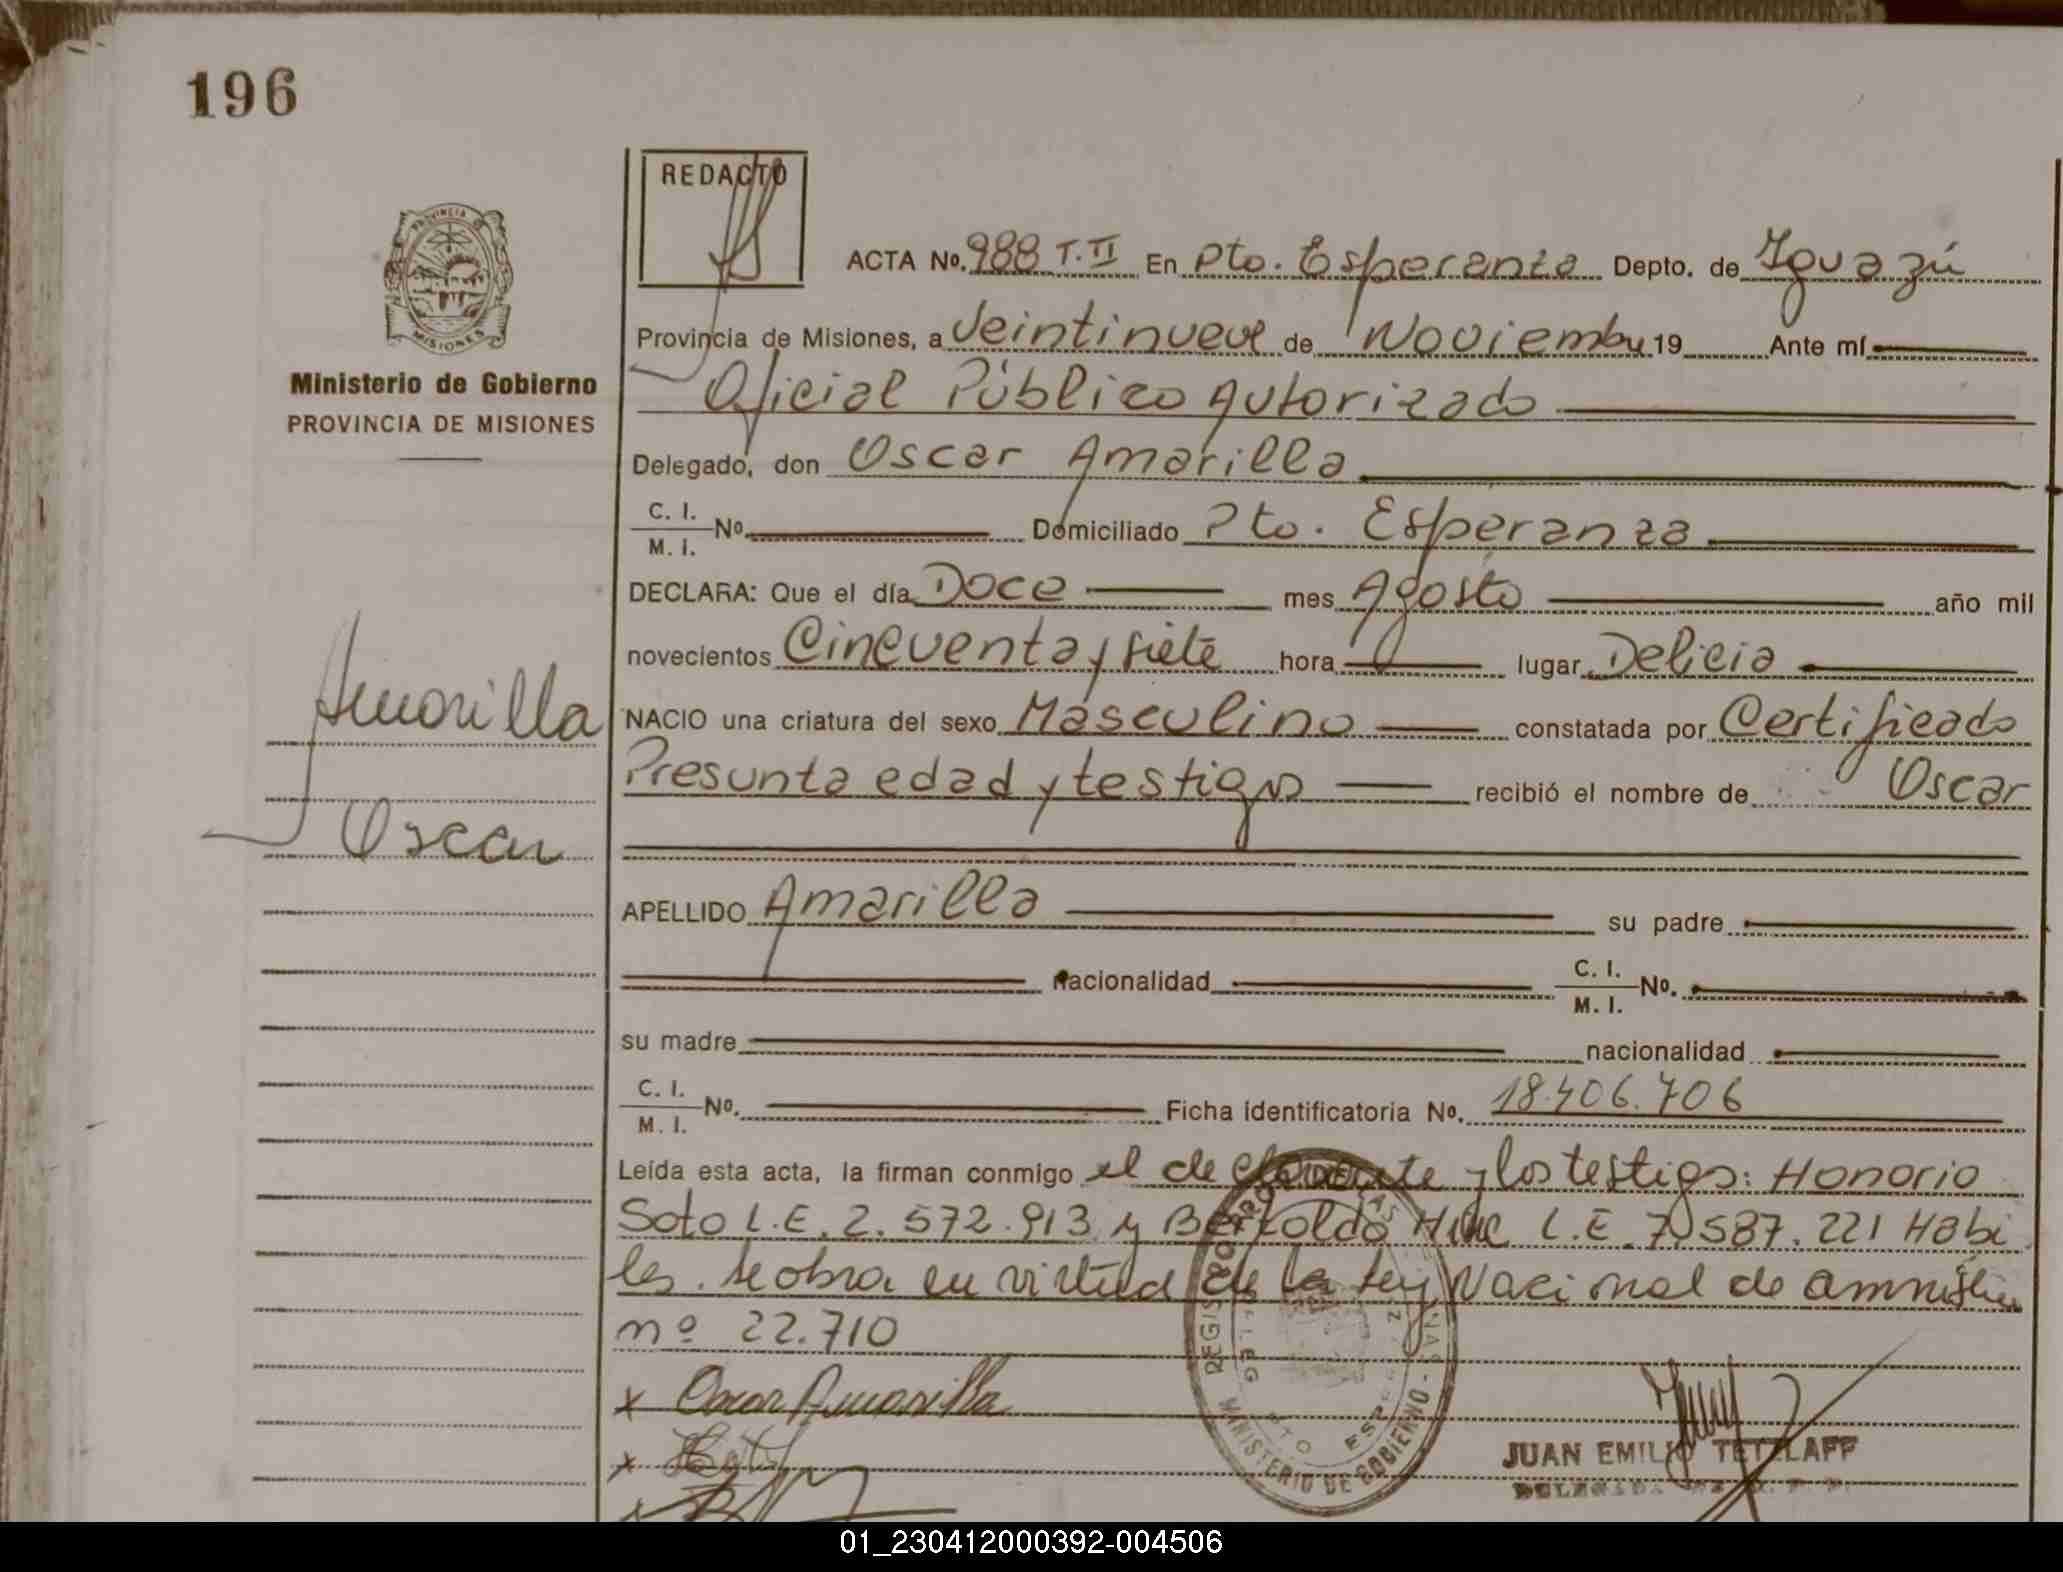 196
REDACTO
PROVINCIA DE
MISIONES
Ministerio de Gobierno
PROVINCIA DE MISIONES
ACTA No. 988 T. II En Pto. Esperanza Depto. de Iguazú
Provincia de Misiones, a Veintinueve de Noviembre 19 Ante mí
Oficial Público Autorizado
Delegado, don Oscar Amarilla
C. I.
M. I. No. Domiciliado Pto. Esperanza
DECLARA: Que el día Doce mes Agosto año mil
novecientos Cincuenta y siete hora lugar Delicia
NACIO una criatura del sexo Masculino constatada por Certificado
Presunta edad y testigos recibió el nombre de Oscar
Amarilla
Oscar
APELLIDO Amarilla su padre
nacionalidad C. I.
M. I. No.
su madre nacionalidad
C. I.
M. I. No. Ficha identificatoria No. 18.406.706
Leída esta acta, la firman conmigo el declarante y los testigos: Honorio
Soto L.E. 2.572.913 y Bertoldo L.E. 7.587.221 Habi
les. Se obra en virtud de la ley Nacional de amnistia
nº 22.710
x Oscar Amarilla
x
x
MINISTERIO DE GOBIERNO
JUAN EMILIO TETZLAFF
01_230412000392-004506